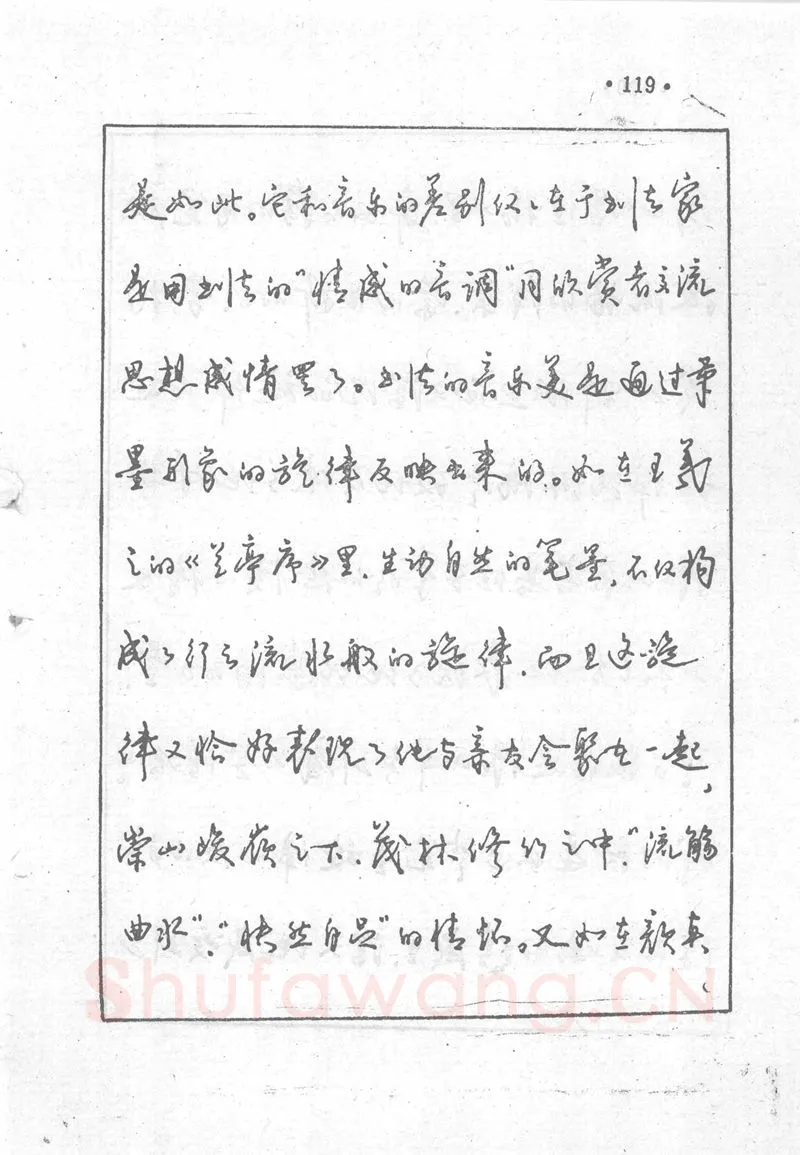 ·119·
是如此。它和音乐的差别仅仅在于书法家
是用书法的“情感的音调”同欣赏者交流
思想感情罢了。书法的音乐美是通过笔
墨形象的旋律反映出来的。如在王羲
之的《兰亭序》里,生动自然的笔墨,不仅构
成了行云流水般的旋律,而且这旋
律又恰好表现了他与亲友会聚在一起,
崇山峻岭之下、茂林修竹之中,“流觞
曲水”、“快然自足”的情怀。又如在颜真
Shufawang.CN